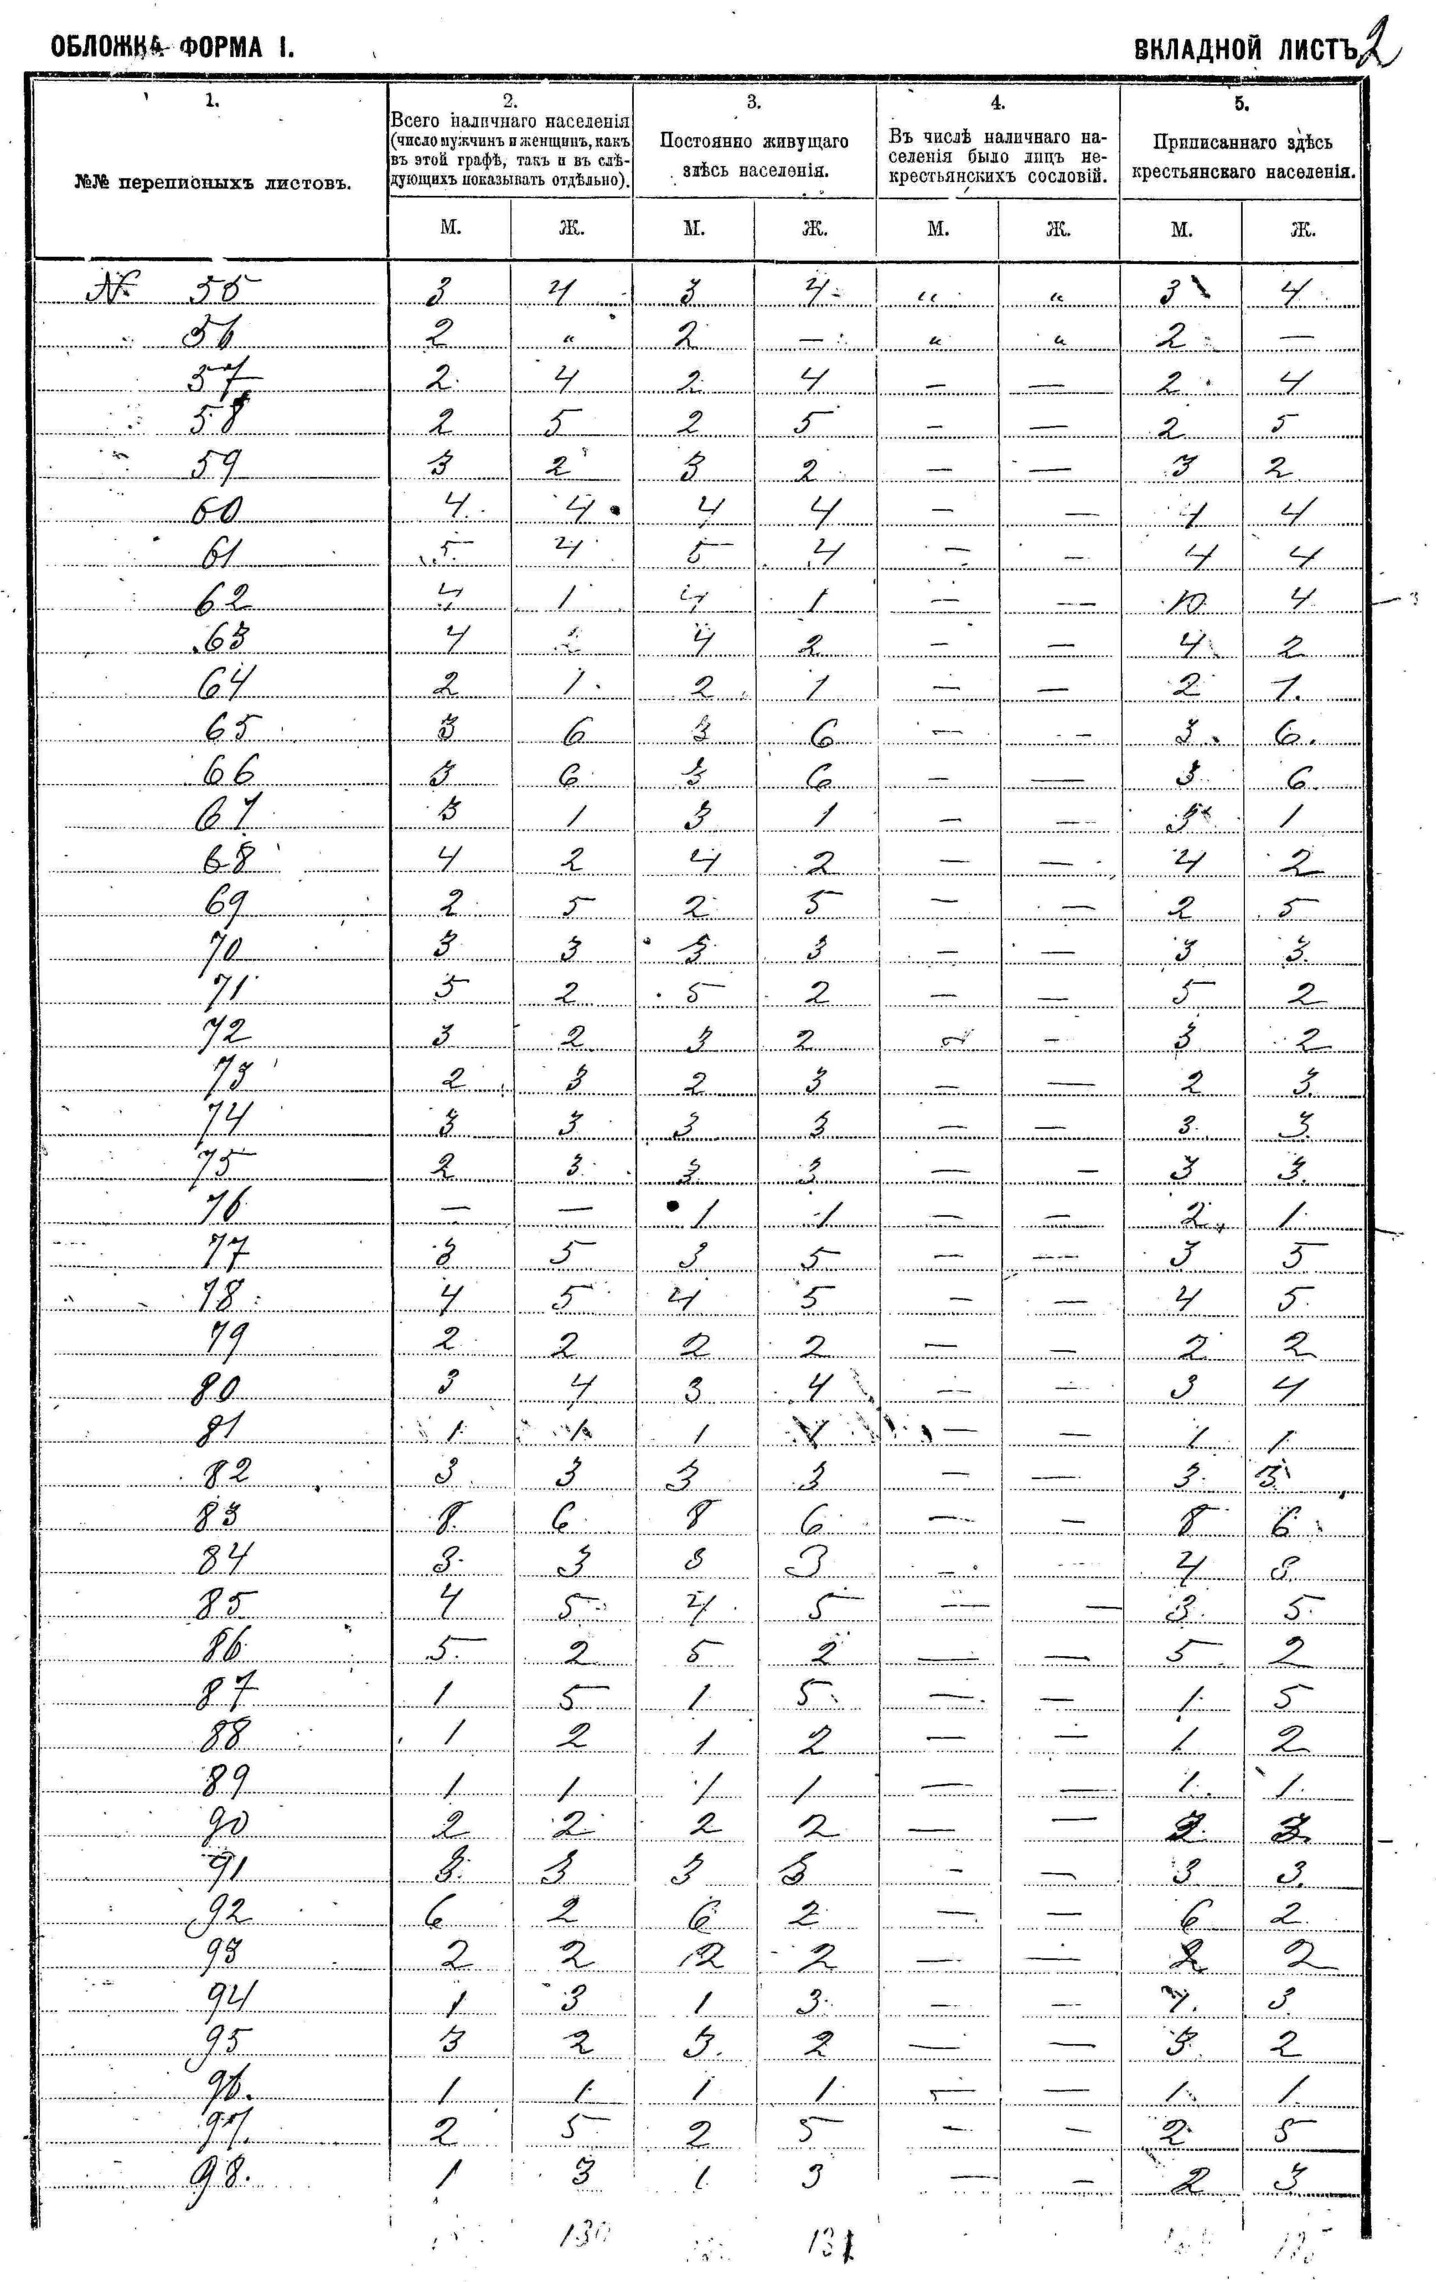 ОБЛОЖКА ФОРМА I. ВКЛАДНОЙ ЛИСТЪ 2
1. 2. 3. 4. 5.
№№ переписныхъ листовъ.
Всего наличнаго населенія
(число мужчинъ и женщинъ, какъ
въ этой графѣ, такъ и въ слѣ-
дующихъ показывать отдѣльно).
Постоянно живущаго
здѣсь населенія.
Въ числѣ наличнаго на-
селенія было лицъ не-
крестьянскихъ сословій.
Приписаннаго здѣсь
крестьянскаго населенія.
М. Ж. М. Ж. М. Ж. М. Ж.
№ 55 3 4 3 4 " " 3 4
56 2 " 2 — " " 2 —
57 2 4 2 4 — — 2 4
58 2 5 2 5 — — 2 5
59 3 2 3 2 — — 3 2
60 4 4 4 4 — — 4 4
61 5 4 5 4 — — 4 4
62 4 1 4 1 — — 10 4
63 4 2 4 2 — — 4 2
64 2 1 2 1 — — 2 1
65 3 6 3 6 — — 3 6
66 3 6 3 6 — — 3 6
67 3 1 3 1 — — 3 1
68 4 2 4 2 — — 4 2
69 2 5 2 5 — — 2 5
70 3 3 3 3 — — 3 3
71 5 2 5 2 — — 5 2
72 3 2 3 2 — — 3 2
73 2 3 2 3 — — 2 3
74 3 3 3 3 — — 3 3
75 2 3 3 3 — — 3 3
76 — — 1 1 — — 2 1
77 3 5 3 5 — — 3 5
78 4 5 4 5 — — 4 5
79 2 2 2 2 — — 2 2
80 3 4 3 4 — — 3 4
81 1 1 1 1 — — 1 1
82 3 3 3 3 — — 3 3
83 8 6 8 6 — — 8 6
84 3 3 3 3 — — 4 3
85 4 5 4 5 — — 3 5
86 5 2 5 2 — — 5 2
87 1 5 1 5 — — 1 5
88 1 2 1 2 — — 1 2
89 1 1 1 1 — — 1 1
90 2 2 2 2 — — 3 3
91 3 3 3 3 — — 3 3
92 6 2 6 2 — — 6 2
93 2 2 2 2 — — 2 2
94 1 3 1 3 — — 1 3
95 3 2 3 2 — — 3 2
96. 1 1 1 1 — — 1 1
97. 2 5 2 5 — — 2 5
98. 1 3 1 3 — — 2 3
130 131